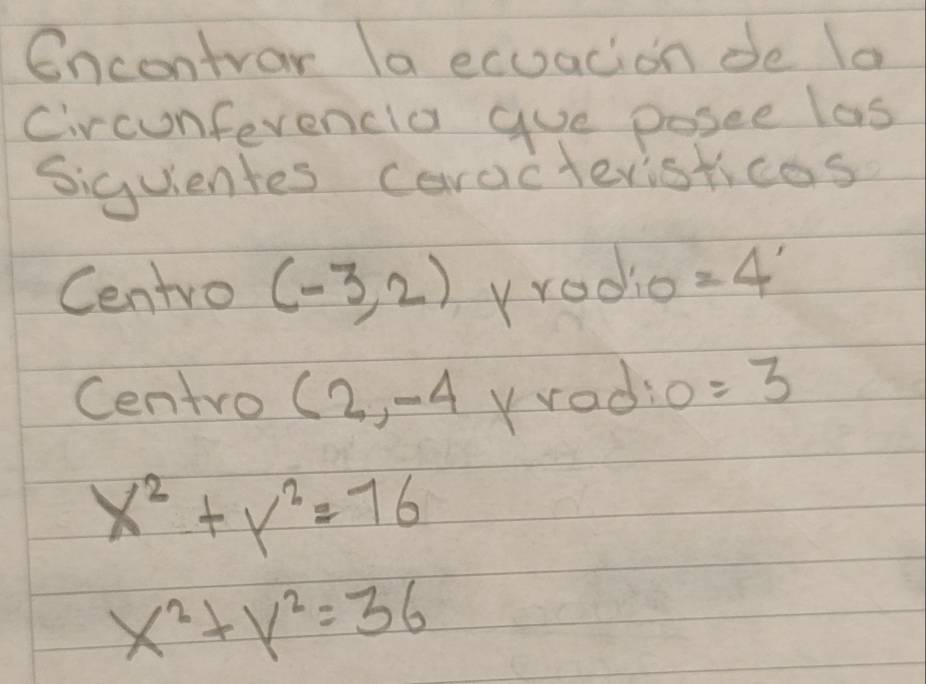 Encontrar la ecuación de la
Circunferencia que posee las
Siguientes caracteristicas
Centro (-3,2) y radio = 4
Centro (2,-4 y radio = 3
x² + y² = 16
x² + y² = 36